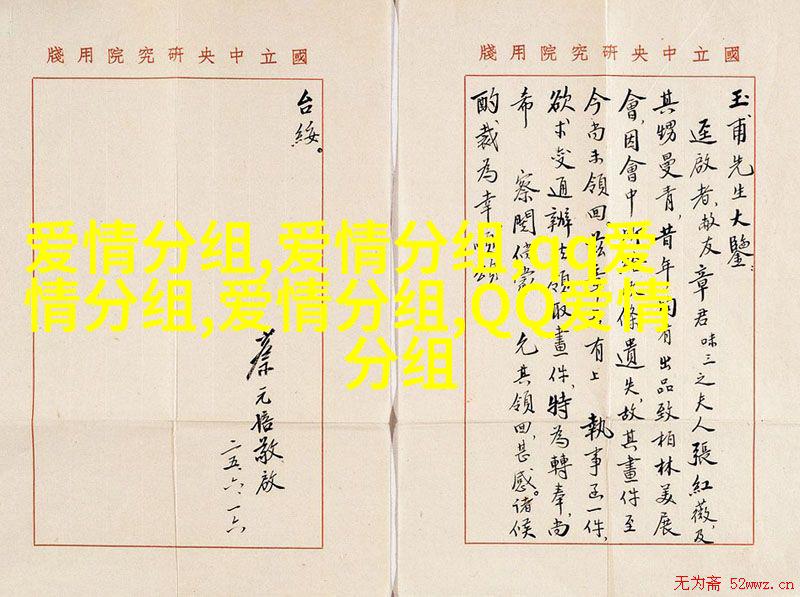 國立中央研究院用牋
玉甫先生大鑒
逕啟者,敝友章君味三之夫人張紅薇,及
其甥曼青,昔年 有出品致柏林美展
會,因會中 條遺失,故其畫件至
今尚未領回, 有上 執事函一件,
欲求 通辦法領取畫件,特為轉奉,尚
希 察閱 允其領回,甚感。諸候
酌裁為幸 頌
國立中央研究院用牋
台綏。
蔡元培敬啟
二五、六、一六
爱情分组,爱情分组,qq爱
情分组,爱情分组,QQ爱情
分组
无为斋 52wwz.cn